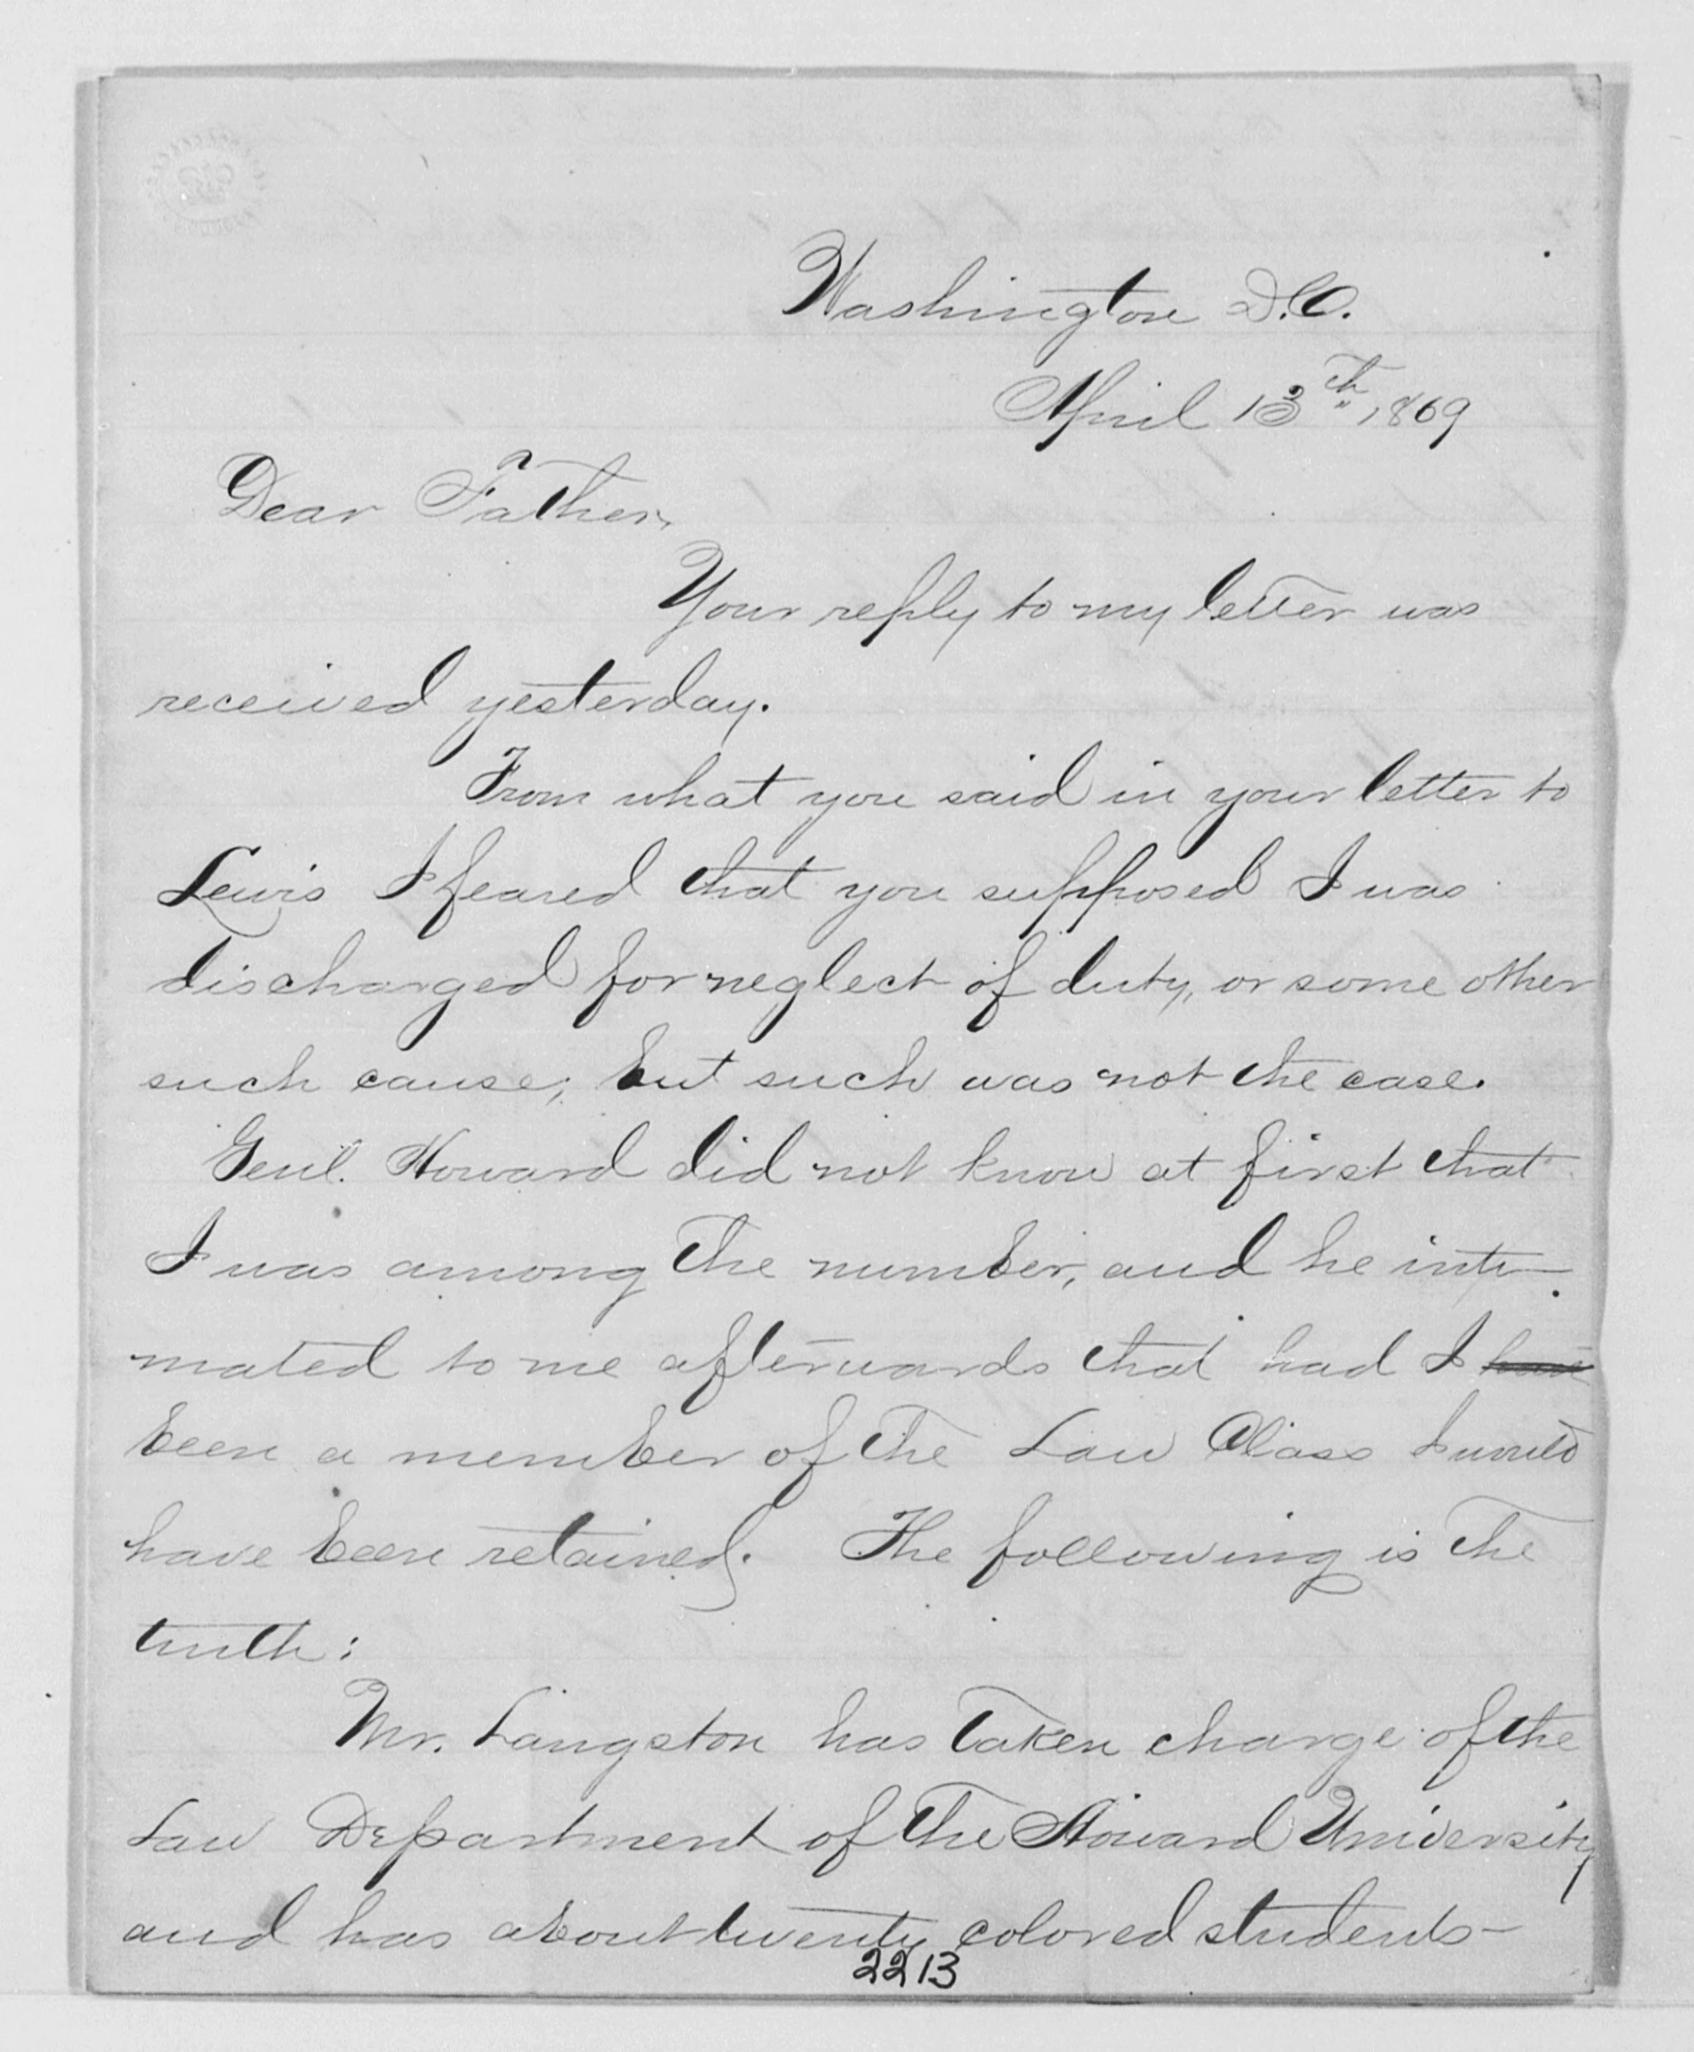 Washington D.C.
April 13th, 1869
Dear Father,
Your reply to my letter was
received yesterday.
From what you said in your letter to
Lewis I feared that you supposed I was
discharged for neglect of duty, or some other
such cause; but such was not the case.
Genl. Howard did not know at first that
I was among the number, and he inti-
mated to me afterwards that had I have
been a member of the Law Class I would
have been retained. The following is the
truth:
Mr. Langston has taken charge of the
Law Department of the Howard University
and has about twenty colored students-
2213